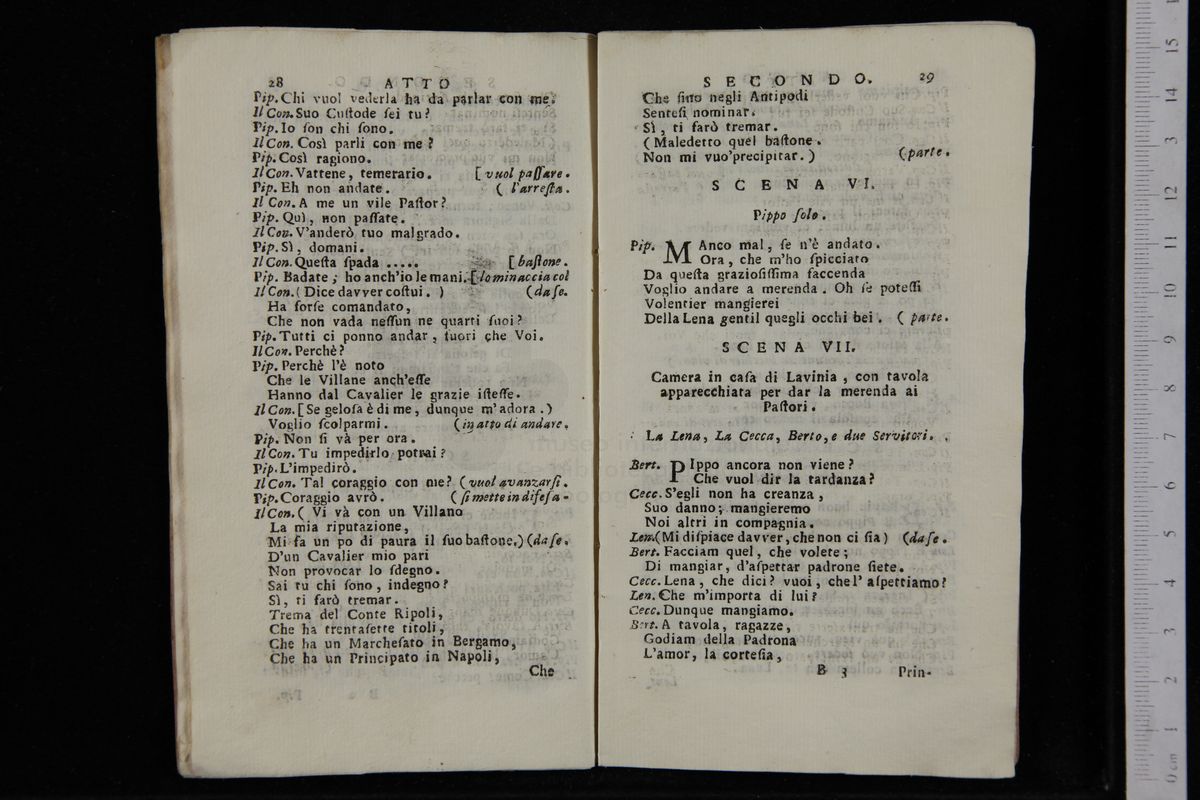 28 ATTO
Pip. Chi vuol vederla ha da parlar con me.
Il Con. Suo Cuſtode ſei tu?
Pip. Io ſon chi ſono.
Il Con. Così parli con me?
Pip. Così ragiono.
Il Con. Vattene, temerario. [vuol paſſare.
Pip. Eh non andate. (l'arreſta.
Il Con. A me un vile Paſtor?
Pip. Quì, non paſſate.
Il Con. V'anderò tuo malgrado.
Pip. Sì, domani.
Il Con. Queſta ſpada ..... [baſtone.
Pip. Badate; ho anch'io le mani. [lo minaccia col
Il Con. (Dice davver coſtui.) (da ſe.
Ha forſe comandato,
Che non vada neſſun ne quarti ſuoi?
Pip. Tutti ci ponno andar, fuori che Voi.
Il Con. Perchè?
Pip. Perchè l'è noto
Che le Villane anch'eſſe
Hanno dal Cavalier le grazie iſteſſe.
Il Con. [Se geloſa è di me, dunque m'adora.)
Voglio ſcolparmi. (in atto di andare.
Pip. Non ſi và per ora.
Il Con. Tu impedirlo potrai?
Pip. L'impedirò.
Il Con. Tal coraggio con me? (vuol avanzarſi.
Pip. Coraggio avrò. (ſi mette in difeſa-
Il Con. (Vi và con un Villano
La mia riputazione,
Mi fa un po di paura il ſuo baſtone.) (da ſe.
D'un Cavalier mio pari
Non provocar lo ſdegno.
Sai tu chi ſono, indegno?
Sì, ti farò tremar.
Trema del Conte Ripoli,
Che ha trentaſette titoli,
Che ha un Marcheſato in Bergamo,
Che ha un Principato in Napoli,
Che
SECONDO. 29
Che ſino negli Antipodi
Senteſi nominar.
Sì, ti farò tremar.
(Maledetto quel baſtone.
Non mi vuo'precipitar.) (parte.
SCENA VI.
Pippo ſolo.
Pip. MAnco mal, ſe n'è andato.
Ora, che m'ho ſpicciato
Da queſta grazioſiſſima faccenda
Voglio andare a merenda. Oh ſe poteſſi
Volentier mangierei
Della Lena gentil quegli occhi bei. (parte.
SCENA VII.
Camera in caſa di Lavinia, con tavola
apparecchiata per dar la merenda ai
Paſtori.
La Lena, La Cecca, Berto, e due Servitori.
Bert. PIppo ancora non viene?
Che vuol dir la tardanza?
Cecc. S'egli non ha creanza,
Suo danno; mangieremo
Noi altri in compagnia.
Len. (Mi diſpiace davver, che non ci ſia) (da ſe.
Bert. Facciam quel, che volete;
Di mangiar, d'aſpettar padrone ſiete.
Cecc. Lena, che dici? vuoi, che l'aſpettiamo?
Len. Che m'importa di lui?
Cecc. Dunque mangiamo.
Bert. A tavola, ragazze,
Godiam della Padrona
L'amor, la corteſia,
B 3 Prin-